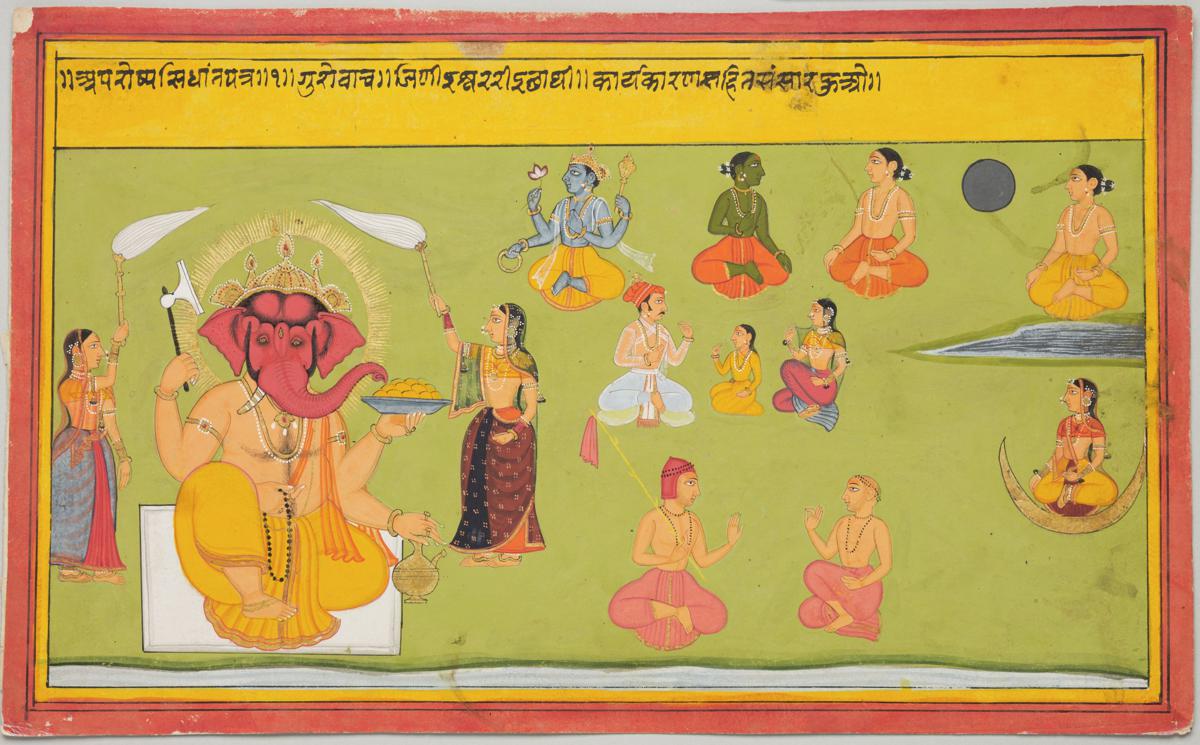 ॥अपरोष्यसिधांतपत्र॥१॥गुरोवाच॥जिणीइश्वररीइछाथी॥कार्यकारणसहितसंसारहुओ॥